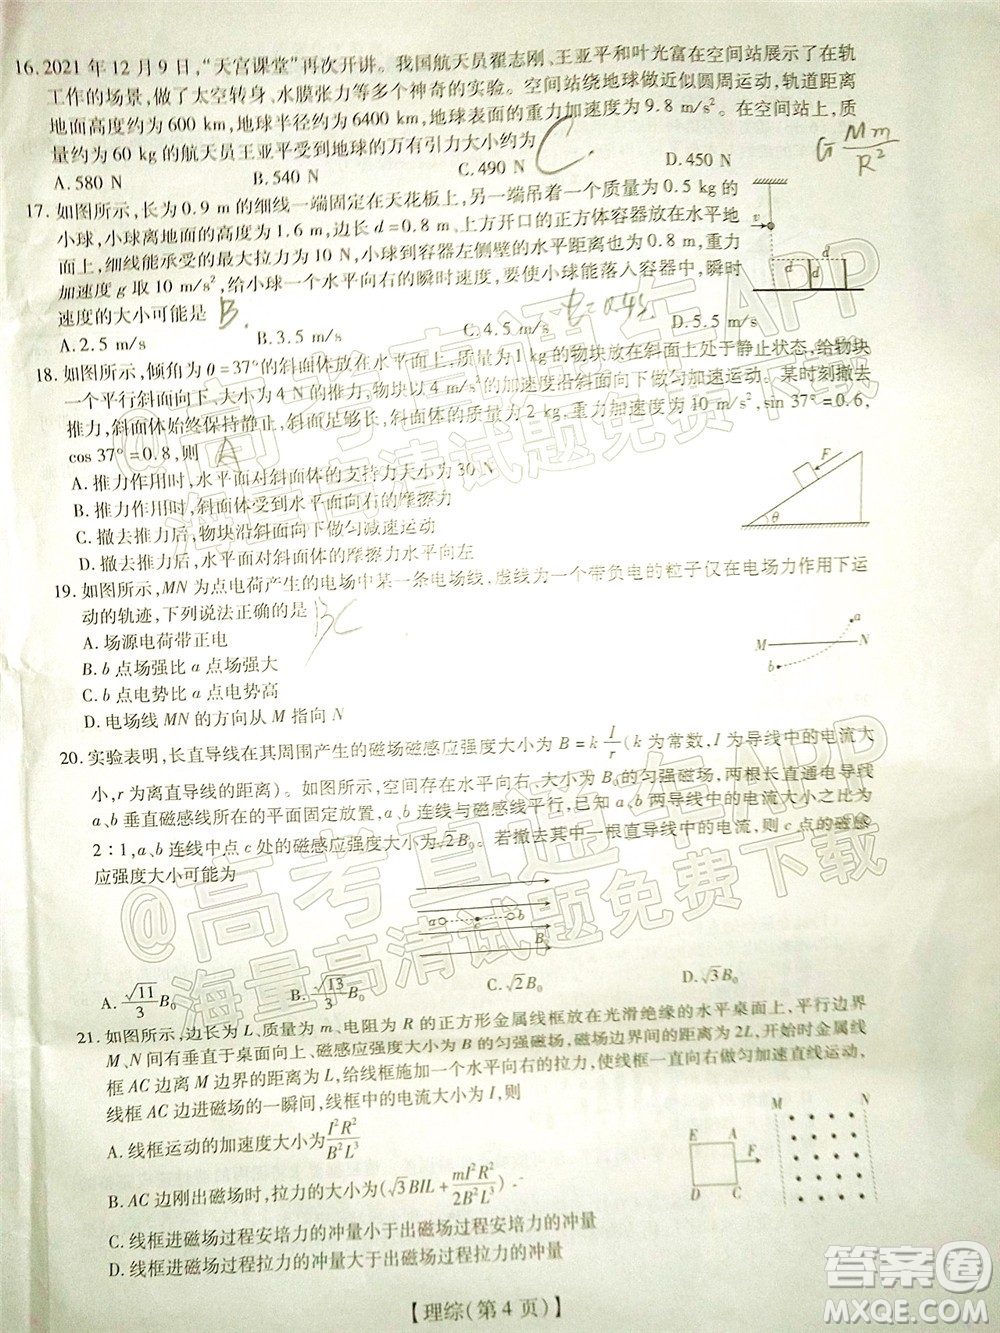 16. 2021 年 12 月 9 日，“天宫课堂”再次开讲。我国航天员翟志刚、王亚平和叶光富在空间站展示了在轨
工作的场景，做了太空转身、水膜张力等多个神奇的实验。空间站绕地球做近似圆周运动，轨道距离
地面高度约为 600 km，地球半径约为 6400 km，地球表面的重力加速度约为 9.8 m/s²。在空间站上，质
量约为 60 kg 的航天员王亚平受到地球的万有引力大小约为 C
G Mm/R²
A. 580 N B. 540 N C. 490 N D. 450 N
17. 如图所示，长为 0.9 m 的细线一端固定在天花板上，另一端吊着一个质量为 0.5 kg 的
小球，小球离地面的高度为 1.6 m，边长 d=0.8 m、上方开口的正方体容器放在水平地
面上，细线能承受的最大拉力为 10 N，小球到容器左侧壁的水平距离为 0.8 m，重力
加速度 g 取 10 m/s²，给小球一个水平向右的瞬时速度，要使小球能落入容器中，瞬时
速度的大小可能是 B.
t=0.4s
A. 2.5 m/s B. 3.5 m/s C. 4.5 m/s D. 5.5 m/s
v
d d
18. 如图所示，倾角为 θ=37°的斜面体放在水平面上，质量为 1 kg 的物块放在斜面上处于静止状态，给物块
一个平行斜面向下、大小为 4 N 的推力，物块以 4 m/s² 的加速度沿斜面向下做匀加速运动。某时刻撤去
推力，斜面体始终保持静止，斜面体的质量为 2 kg，重力加速度为 10 m/s²，sin 37°=0.6，
cos 37°=0.8，则 A
A. 推力作用时，水平面对斜面体的支持力大小为 30 N
B. 推力作用时，斜面体受到水平面向右的摩擦力
C. 撤去推力后，物块沿斜面向下做匀减速运动
D. 撤去推力后，水平面对斜面体的摩擦力水平向左
F
θ
19. 如图所示，MN 为点电荷产生的电场中某一条电场线，虚线为一个带负电的粒子仅在电场力作用下运
动的轨迹，下列说法正确的是 BC
A. 场源电荷带正电
B. b 点场强比 a 点场强大
C. b 点电势比 a 点电势高
D. 电场线 MN 的方向从 M 指向 N
a
M N
b
20. 实验表明，长直导线在其周围产生的磁场磁感应强度大小为 B = k I/r (k 为常数，I 为导线中的电流大
小，r 为离直导线的距离)。如图所示，空间存在水平向右、大小为 B₀ 的匀强磁场，两根长直通电导线
a、b 垂直磁感线所在的平面固定放置，a、b 连线与磁感线平行，已知 a、b 两导线中的电流大小之比为
2∶1，a、b 连线中点 c 处的磁感应强度大小为√2B₀。若撤去其中一根直导线中的电流，则 c 点的磁感
应强度大小可能为
a c b
B₀
A. √11/3 B₀ B. √13/3 B₀ C. √2B₀ D. √3B₀
21. 如图所示，边长为 L、质量为 m、电阻为 R 的正方形金属线框放在光滑绝缘的水平桌面上，平行边界
M、N 间有垂直于桌面向上、磁感应强度大小为 B 的匀强磁场，磁场边界间的距离为 2L，开始时金属线
框 AC 边离 M 边界的距离为 L，给线框施加一个水平向右的拉力，让线框一直向右做匀加速直线运动，
线框 AC 边进磁场的一瞬间，线框中的电流大小为 I，则
A. 线框运动的加速度大小为 I²R²/B²L³
B. AC 边刚出磁场时，拉力的大小为(√3BIL+mI²R²/2B²L³)
C. 线框进磁场过程安培力的冲量小于出磁场过程安培力的冲量
D. 线框进磁场过程拉力的冲量大于出磁场过程拉力的冲量
M N
E A
F
D C
【理综(第 4 页)】
@高考直通车APP
海量高清试题免费下载
@高考直通车APP
海量高清试题免费下载
答案圈
MXQE.COM